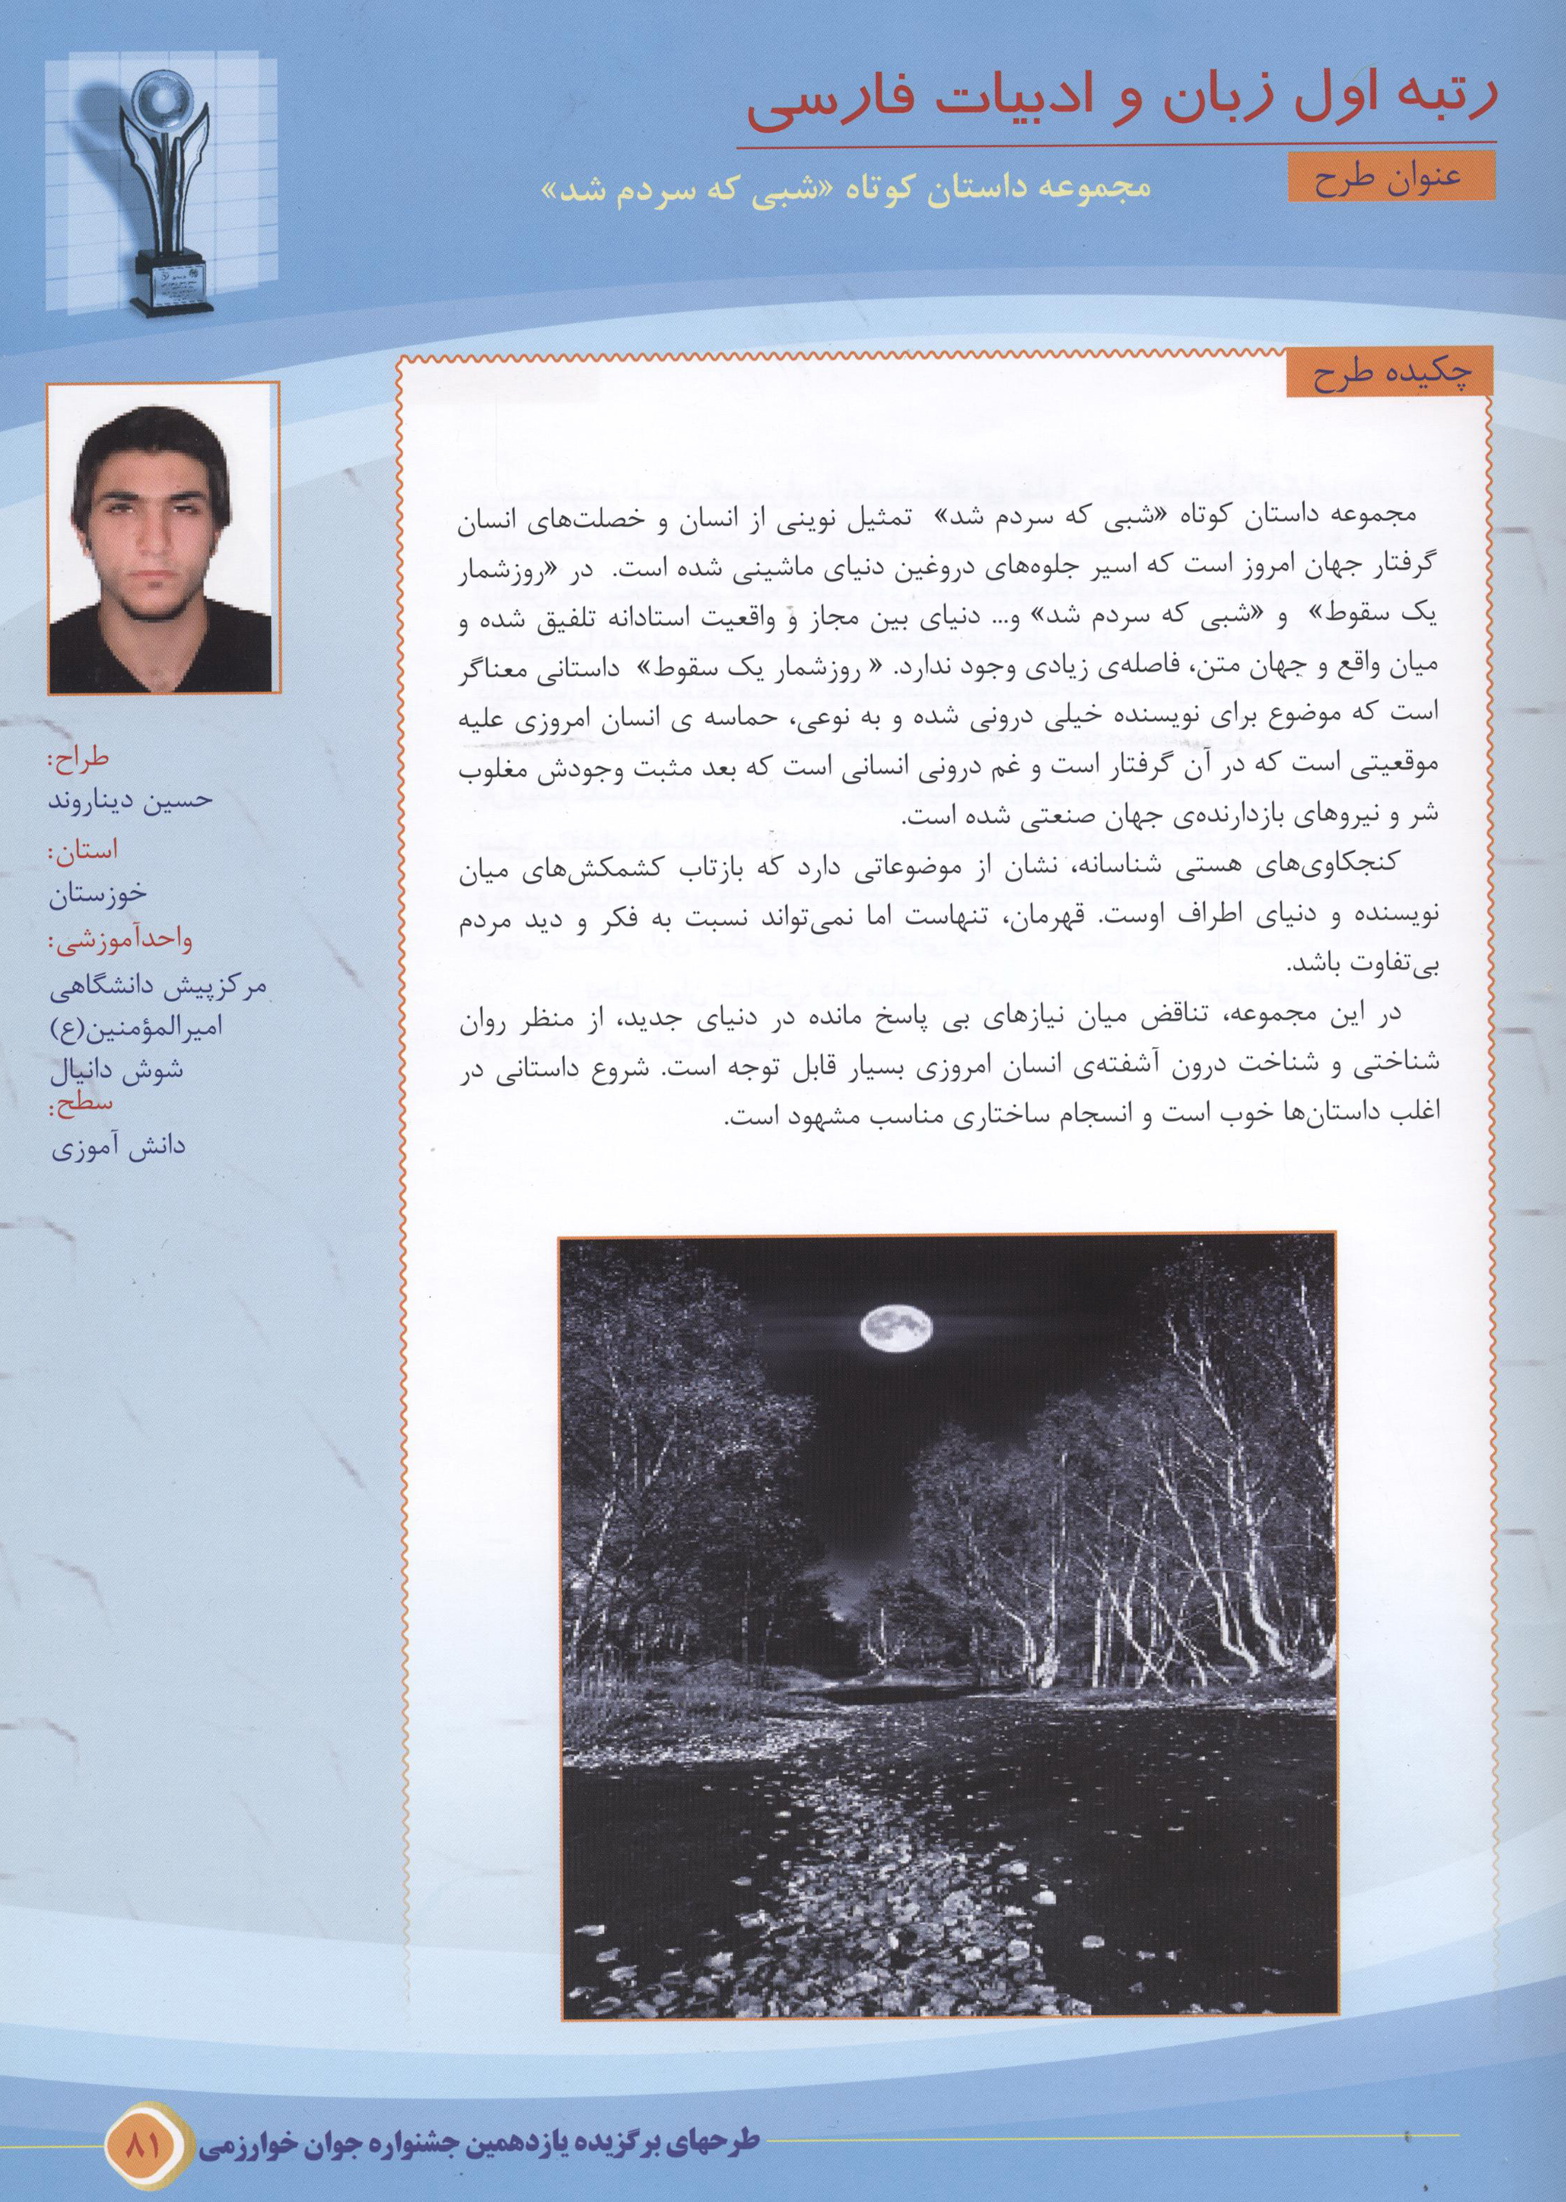 رتبه اول زبان و ادبیات فارسی
عنوان طرح
مجموعه داستان کوتاه «شبی که سردم شد»
چکیده طرح
مجموعه داستان کوتاه «شبی که سردم شد» تمثیل نوینی از انسان و خصلت‌های انسان
گرفتار جهان امروز است که اسیر جلوه‌های دروغین دنیای ماشینی شده است. در «روزشمار
یک سقوط» و «شبی که سردم شد» و... دنیای بین مجاز و واقعیت استادانه تلفیق شده و
میان واقع و جهان متن، فاصله‌ی زیادی وجود ندارد. « روزشمار یک سقوط» داستانی معناگر
است که موضوع برای نویسنده خیلی درونی شده و به نوعی، حماسه ی انسان امروزی علیه
موقعیتی است که در آن گرفتار است و غم درونی انسانی است که بعد مثبت وجودش مغلوب
شر و نیروهای بازدارنده‌ی جهان صنعتی شده است.
کنجکاوی‌های هستی شناسانه، نشان از موضوعاتی دارد که بازتاب کشمکش‌های میان
نویسنده و دنیای اطراف اوست. قهرمان، تنهاست اما نمی‌تواند نسبت به فکر و دید مردم
بی‌تفاوت باشد.
در این مجموعه، تناقض میان نیازهای بی پاسخ مانده در دنیای جدید، از منظر روان
شناختی و شناخت درون آشفته‌ی انسان امروزی بسیار قابل توجه است. شروع داستانی در
اغلب داستان‌ها خوب است و انسجام ساختاری مناسب مشهود است.
طراح:
حسین دیناروند
استان:
خوزستان
واحدآموزشی:
مرکزپیش دانشگاهی
امیرالمؤمنین(ع)
شوش دانیال
سطح:
دانش آموزی
طرحهای برگزیده یازدهمین جشنواره جوان خوارزمی
۸۱